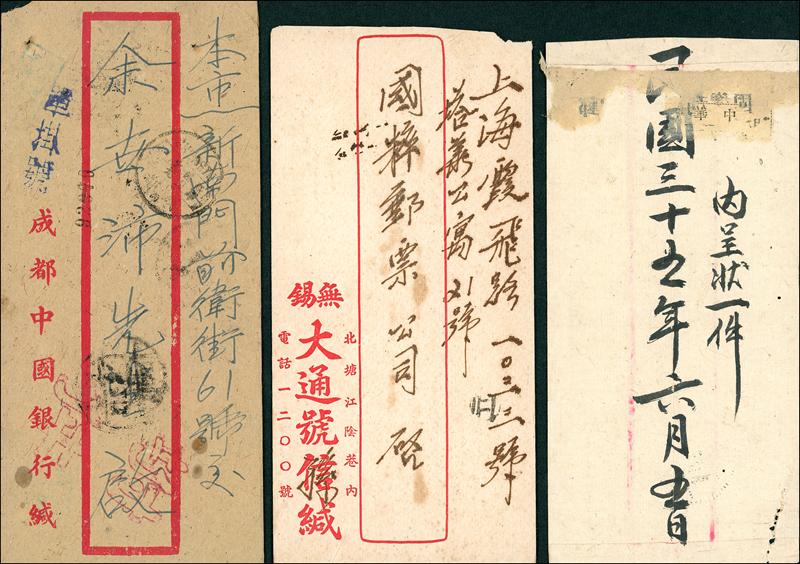 本市新南門前衛街61號交
余
先
啟
單掛號
成都中國銀行緘
上海霞飛路一〇二三號
培恩公寓21號
國粹郵票公司 啟
北塘江陰巷內
無錫
大通號
緘
電話一二〇〇號
內呈狀一件
民國三十五年六月五日